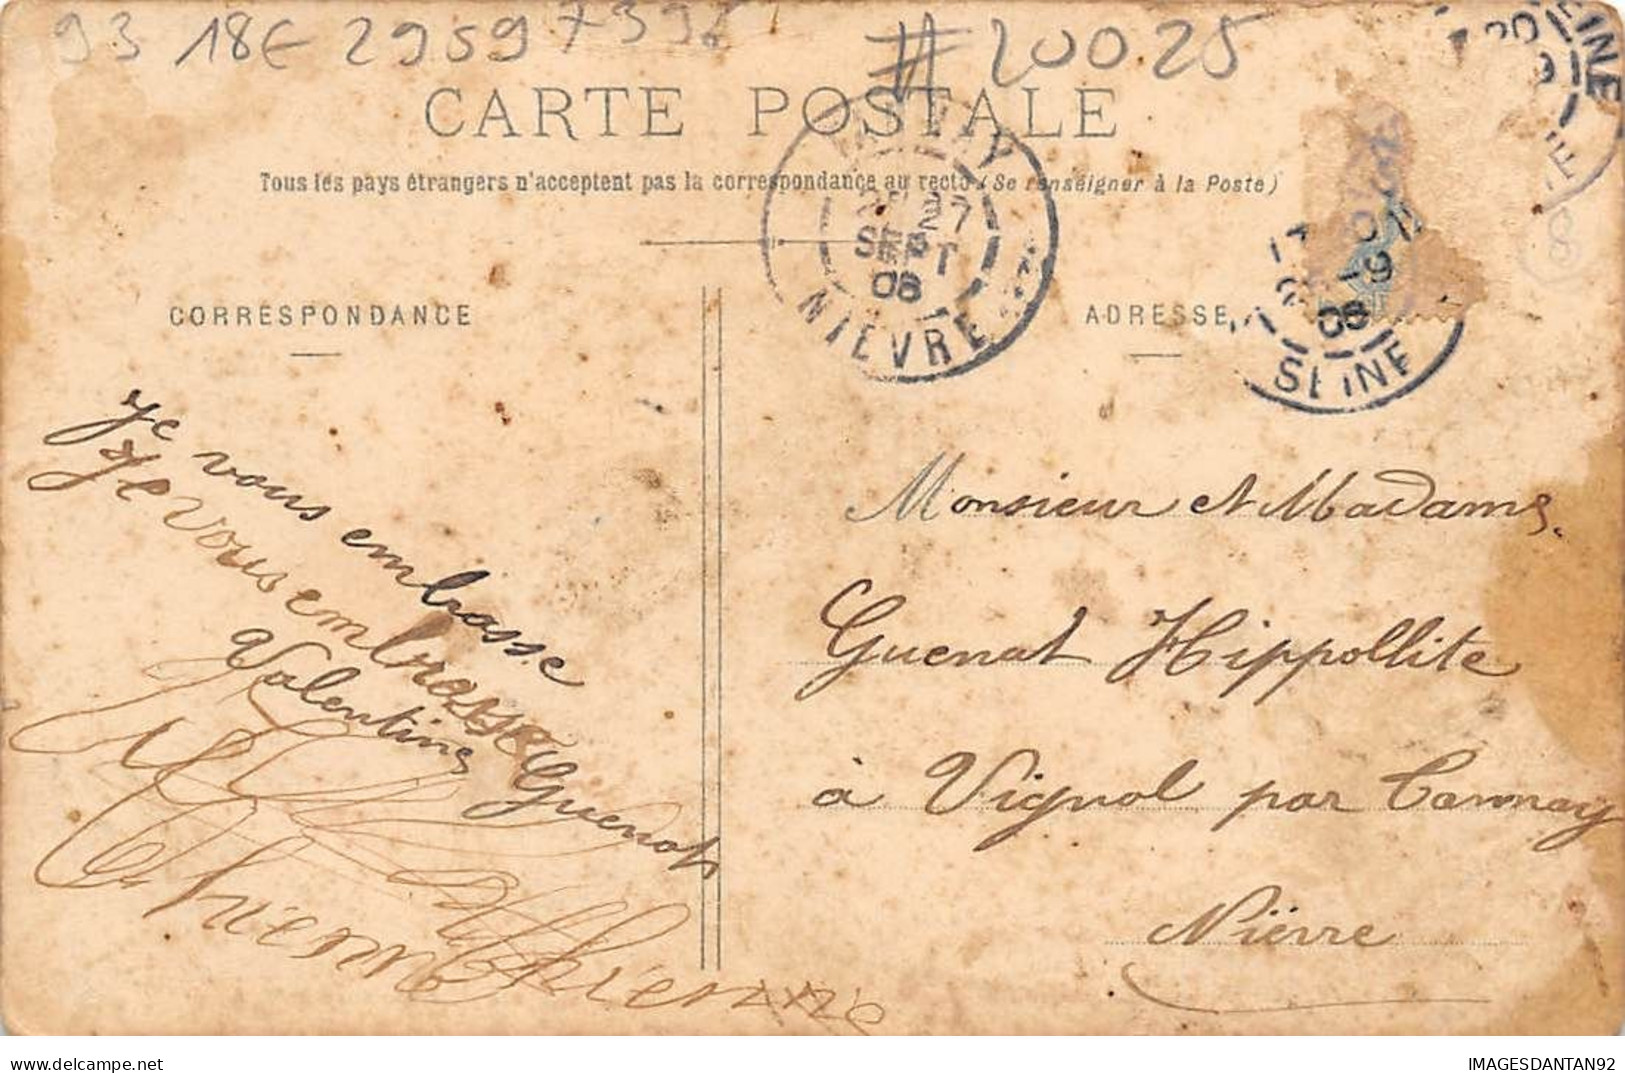 93 18E 2959 #20025
CARTE POSTALE
Tous les pays étrangers n'acceptent pas la correspondance au recto (Se renseigner à la Poste)
27
SEPT
06
NIEVRE
SEINE
SEINE
CORRESPONDANCE
ADRESSE
Je vous embrasse
Je vous embrasse
Valentine Guenot
Monsieur et Madame
Guenot Hippollite
à Vignol par Tannay
Nièvre
IMAGESDANTAN92
delcampe.net